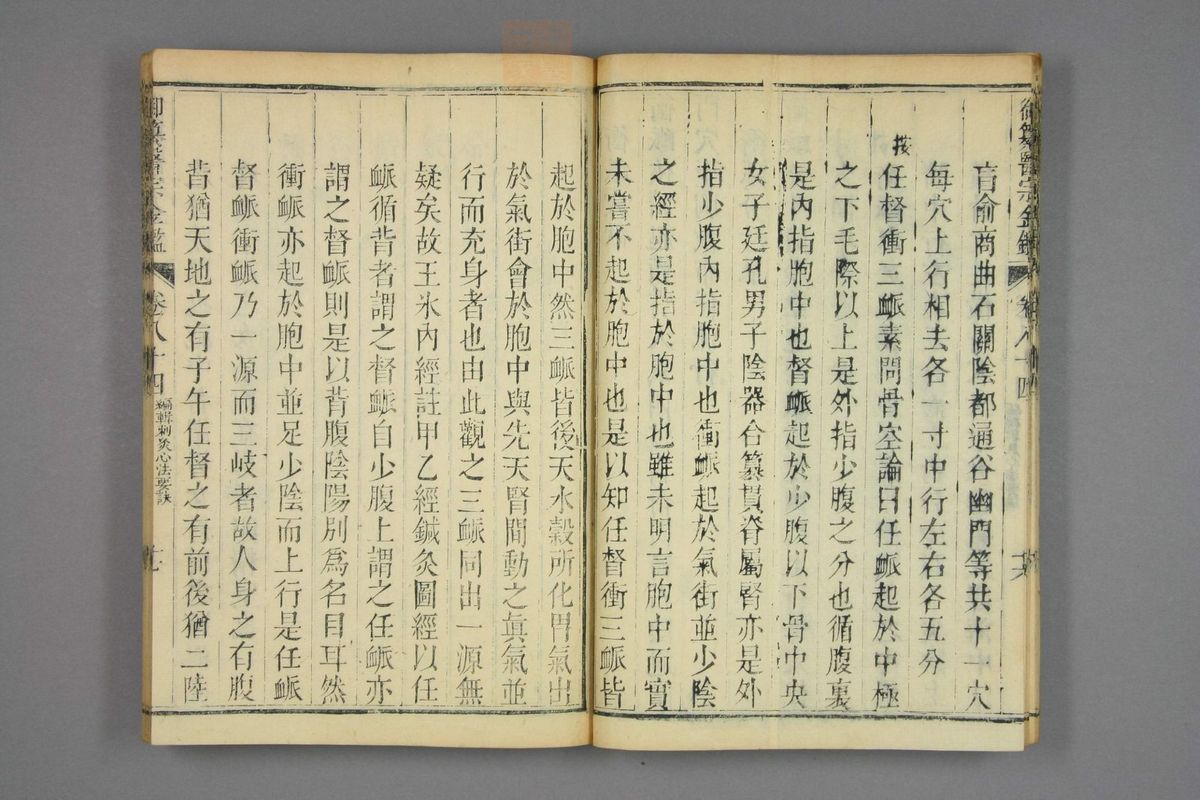 御纂醫宗金鑑
卷八十四
肓俞商曲石關陰都通谷幽門等共十一穴
每穴上行相去各一寸中行左右各五分
按任督衝三脈素問骨空論曰任脈起於中極
之下毛際以上是外指少腹之分也循腹裏
是內指胞中也督脈起於少腹以下骨中央
女子廷孔男子陰器合篡貫脊屬腎亦是外
指少腹內指胞中也衝脈起於氣街並少陰
之經亦是指於胞中也雖未明言胞中而實
未嘗不起於胞中也是以知任督衝三脈皆
起於胞中然三脈皆後天水穀所化胃氣出
於氣街會於胞中與先天腎間動之眞氣並
行而充身者也由此觀之三脈同出一源無
疑矣故王氷內經註甲乙經鍼灸圖經以任
脈循背者謂之督脈自少腹上謂之任脈亦
謂之督脈則是以背腹陰陽別爲名目耳然
衝脈亦起於胞中並足少陰而上行是任脈
督脈衝脈乃一源而三岐者故人身之有腹
背猶天地之有子午任督之有前後猶二陸
御纂醫宗金鑑
卷八十四
編輯刺灸心法要訣